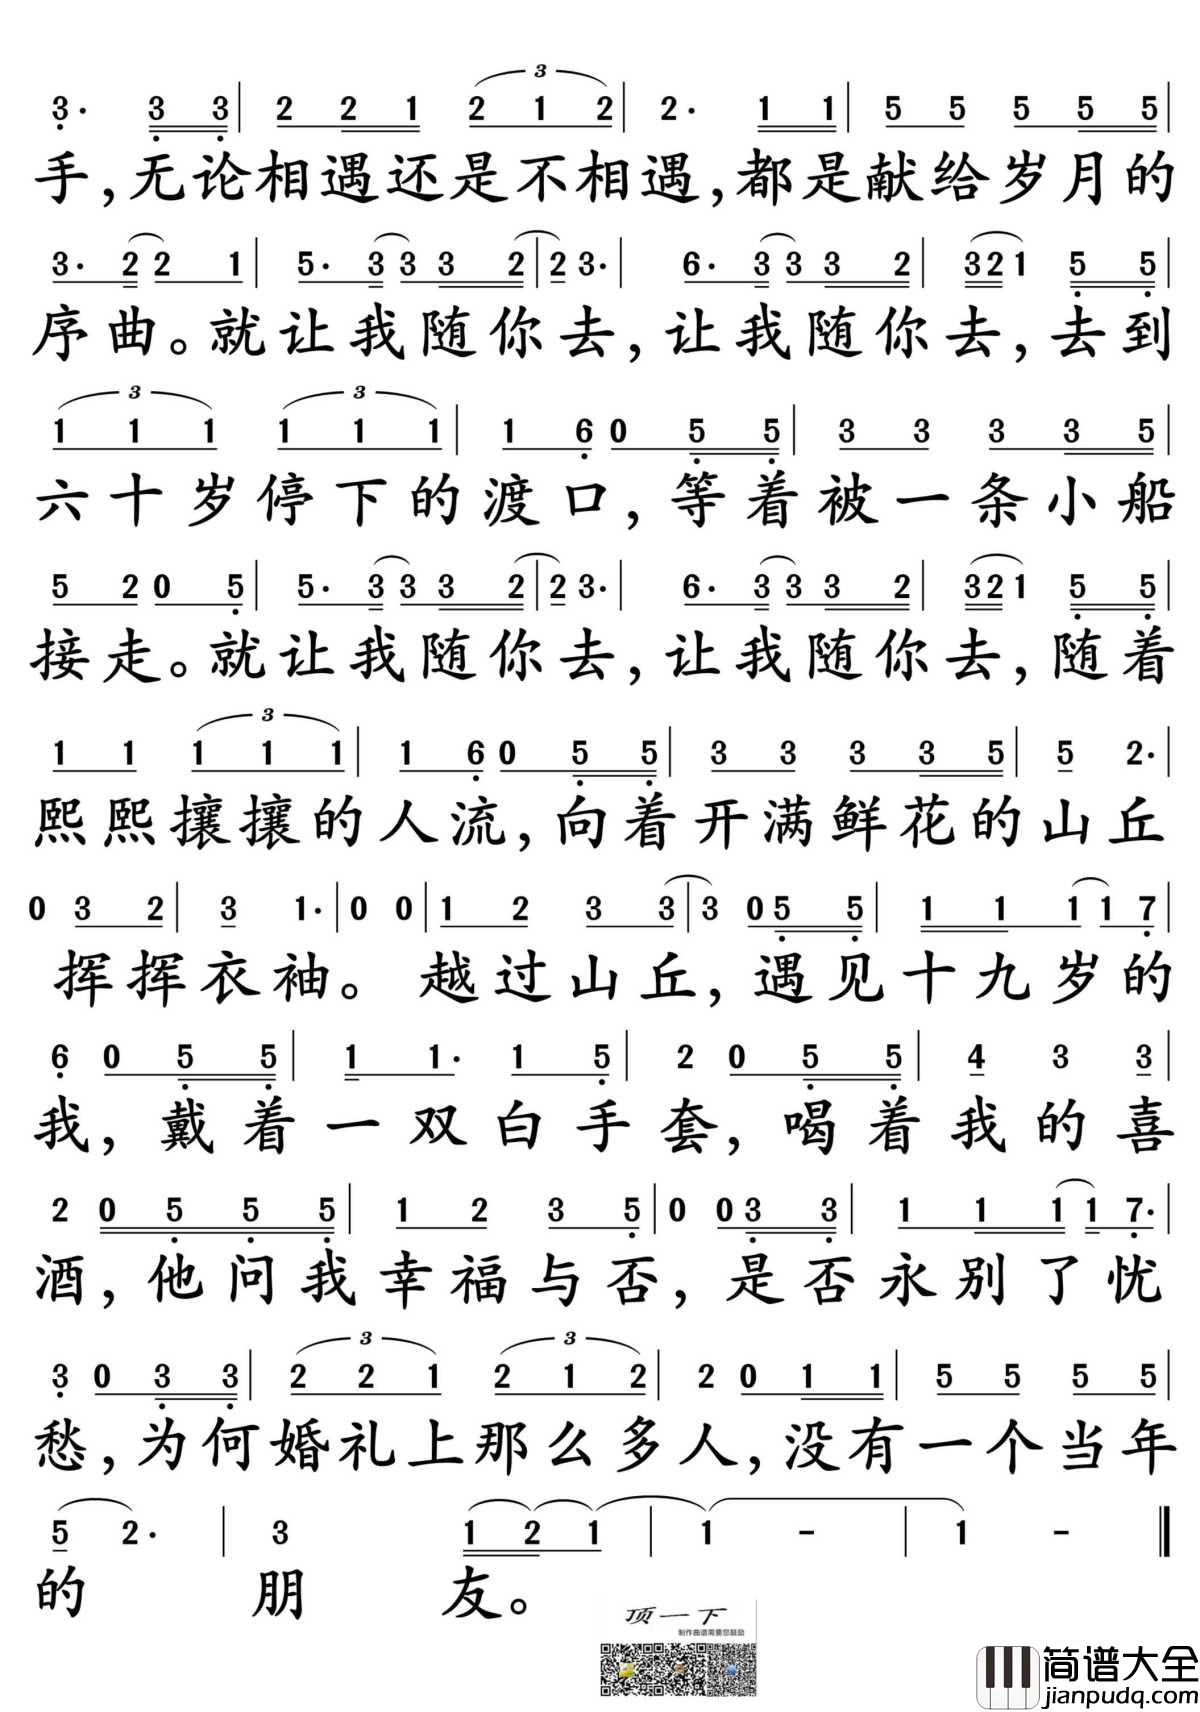 3
3· 3 3 | 2 2 1 2 1 2 | 2· 1 1 | 5 5 5 5 5 |
手,无论相遇还是不相遇,都是献给岁月的
3· 2 2 1 | 5· 3 3 3 2 | 2 3· | 6· 3 3 3 2 | 3 2 1 5 5 |
序曲。就让我随你去,让我随你去,去到
3 3
1 1 1 1 1 1 | 1 6 0 5 5 | 3 3 3 3 5 |
六十岁停下的渡口,等着被一条小船
5 2 0 5 | 5· 3 3 3 2 | 2 3· | 6· 3 3 3 2 | 3 2 1 5 5 |
接走。就让我随你去,让我随你去,随着
3
1 1 1 1 1 | 1 6 0 5 5 | 3 3 3 3 5 | 5 2· |
熙熙攘攘的人流,向着开满鲜花的山丘
0 3 2 | 3 1· | 0 0 | 1 2 3 3 | 3 0 5 5 | 1 1 1 1 7 |
挥挥衣袖。越过山丘,遇见十九岁的
6 0 5 5 | 1 1· 1 5 | 2 0 5 5 | 4 3 3 |
我,戴着一双白手套,喝着我的喜
2 0 5 5 5 | 1 2 3 5 | 0 0 3 3 | 1 1 1 1 7· |
酒,他问我幸福与否,是否永别了忧
3 3
3 0 3 3 | 2 2 1 2 1 2 | 2 0 1 1 | 5 5 5 5 |
愁,为何婚礼上那么多人,没有一个当年
5 2· | 3 1 2 1 | 1 - | 1 - ‖
的朋友。
顶一下
制作曲谱需要您鼓励
简谱大全
jianpudq.com